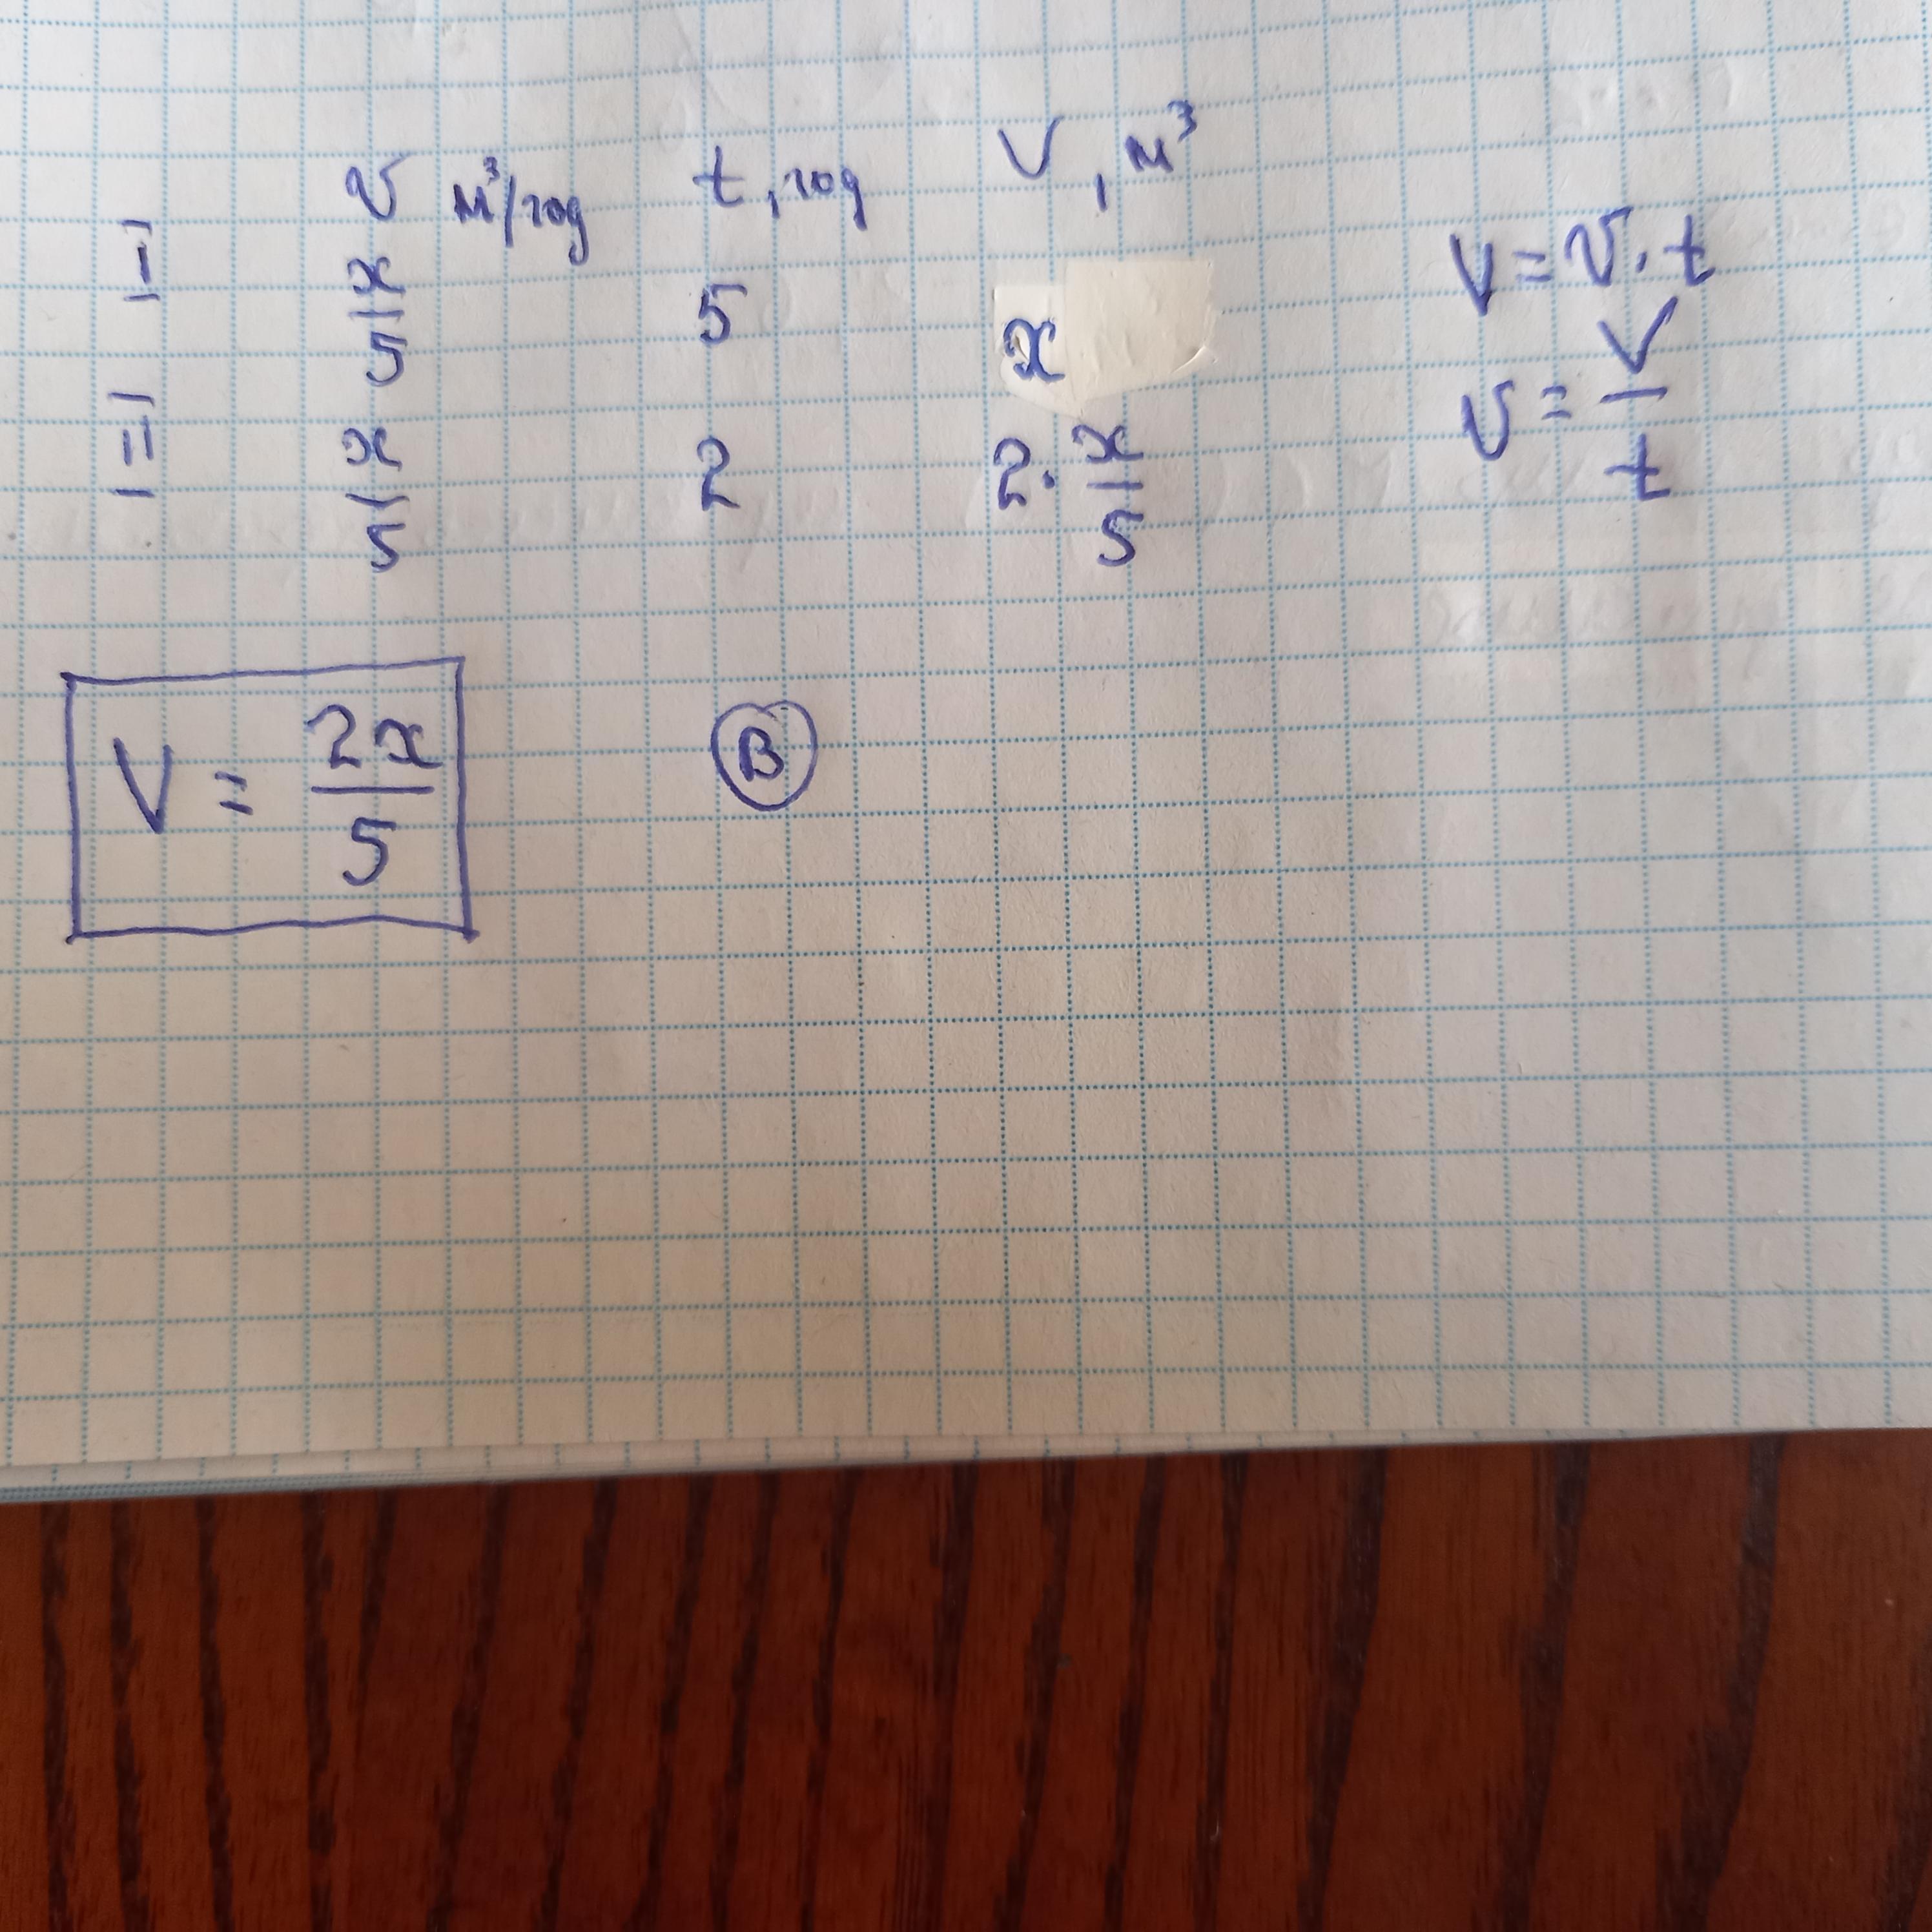 v м³/год t, год V, м³
I x/5 5 x
II x/5 2 2·x/5
V = v·t
v = V/t
V = 2x/5 В